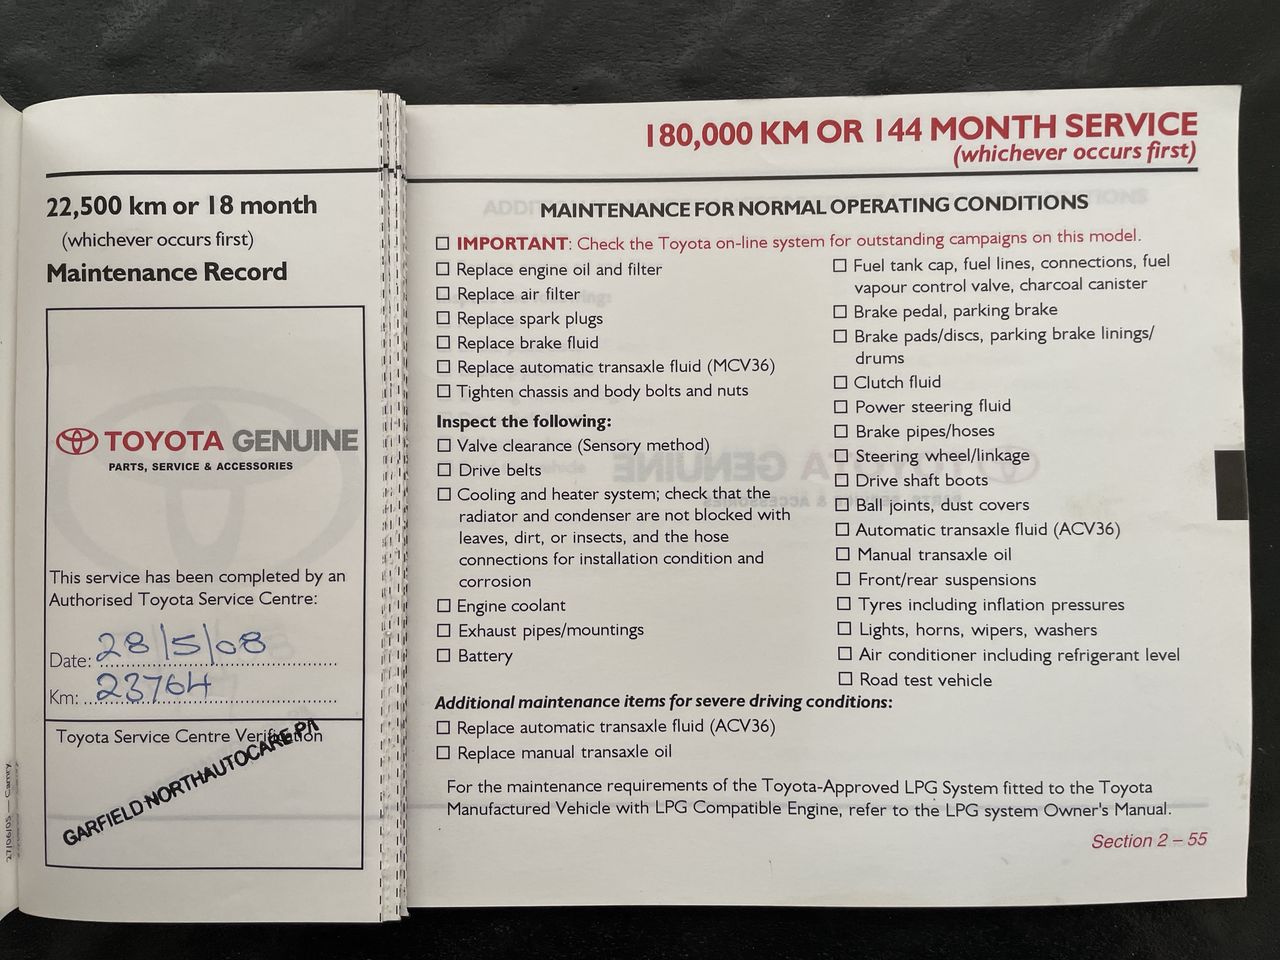 22,500 km or 18 month
(whichever occurs first)
Maintenance Record
TOYOTA GENUINE
PARTS, SERVICE & ACCESSORIES
This service has been completed by an
Authorised Toyota Service Centre:
Date: 28/5/08
Km: 23764
Toyota Service Centre Verification
GARFIELD NORTH AUTOCARE P/L
27/06/05 — Camry
180,000 KM OR 144 MONTH SERVICE
(whichever occurs first)
MAINTENANCE FOR NORMAL OPERATING CONDITIONS
IMPORTANT: Check the Toyota on-line system for outstanding campaigns on this model.
Replace engine oil and filter
Replace air filter
Replace spark plugs
Replace brake fluid
Replace automatic transaxle fluid (MCV36)
Tighten chassis and body bolts and nuts
Inspect the following:
Valve clearance (Sensory method)
Drive belts
Cooling and heater system; check that the
radiator and condenser are not blocked with
leaves, dirt, or insects, and the hose
connections for installation condition and
corrosion
Engine coolant
Exhaust pipes/mountings
Battery
Fuel tank cap, fuel lines, connections, fuel
vapour control valve, charcoal canister
Brake pedal, parking brake
Brake pads/discs, parking brake linings/
drums
Clutch fluid
Power steering fluid
Brake pipes/hoses
Steering wheel/linkage
Drive shaft boots
Ball joints, dust covers
Automatic transaxle fluid (ACV36)
Manual transaxle oil
Front/rear suspensions
Tyres including inflation pressures
Lights, horns, wipers, washers
Air conditioner including refrigerant level
Road test vehicle
Additional maintenance items for severe driving conditions:
Replace automatic transaxle fluid (ACV36)
Replace manual transaxle oil
For the maintenance requirements of the Toyota-Approved LPG System fitted to the Toyota
Manufactured Vehicle with LPG Compatible Engine, refer to the LPG system Owner's Manual.
Section 2 – 55